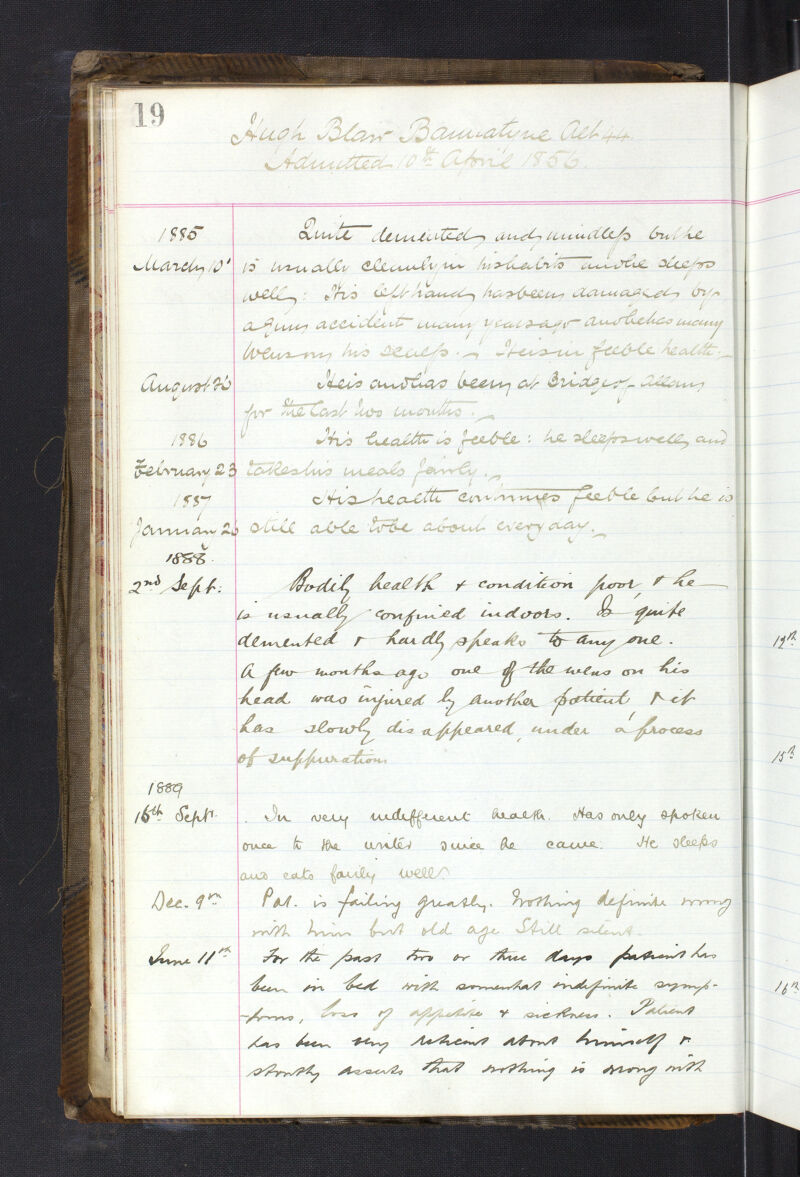 19
Hugh Blair Bannatyne Aet 44.
Admitted 10th April 1856.
1885
Quite demented and mindless but he
March 10
is usually cleanly in his habits and he sleeps
well: His left hand has been damaged by
a gun accident many years ago and he has many
wens on his scalp. He is in feeble health.
August 20
He is and has been at Bridge of Allan
for the last two months.
1886
His health is feeble: he sleeps well and
February 23
takes his meals fairly.
1887
His health continues feeble but he is
January 20
still able to be about every day.
1888.
2nd Sept:
Bodily health & condition poor & he
is usually confined indoors. Is quite
demented & hardly speaks to any one.
A few months ago one of the wens on his
head was injured by another patient & it
has slowly disappeared, under a process
of suppuration
1889
16th Sept.
In very indifferent health. Has only spoken
once to the writer since he came. He sleeps
and eats fairly well.
Dec. 9th
Pat. is failing greatly. Nothing definite wrong
with him but old age. Still silent.
June 11th
For the past two or three days patient has
been in bed with somewhat indefinite symp-
-toms, loss of appetite & sickness. Patient
has been very reticent about himself &
stoutly asserts that nothing is wrong with
12th
15th
16th